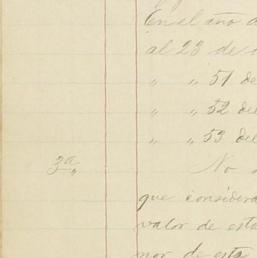 En el año d
al 23 de
" " 51 de
" " 52 de
" " 53 del
3ª " No
que considera
valor de este
por de esta